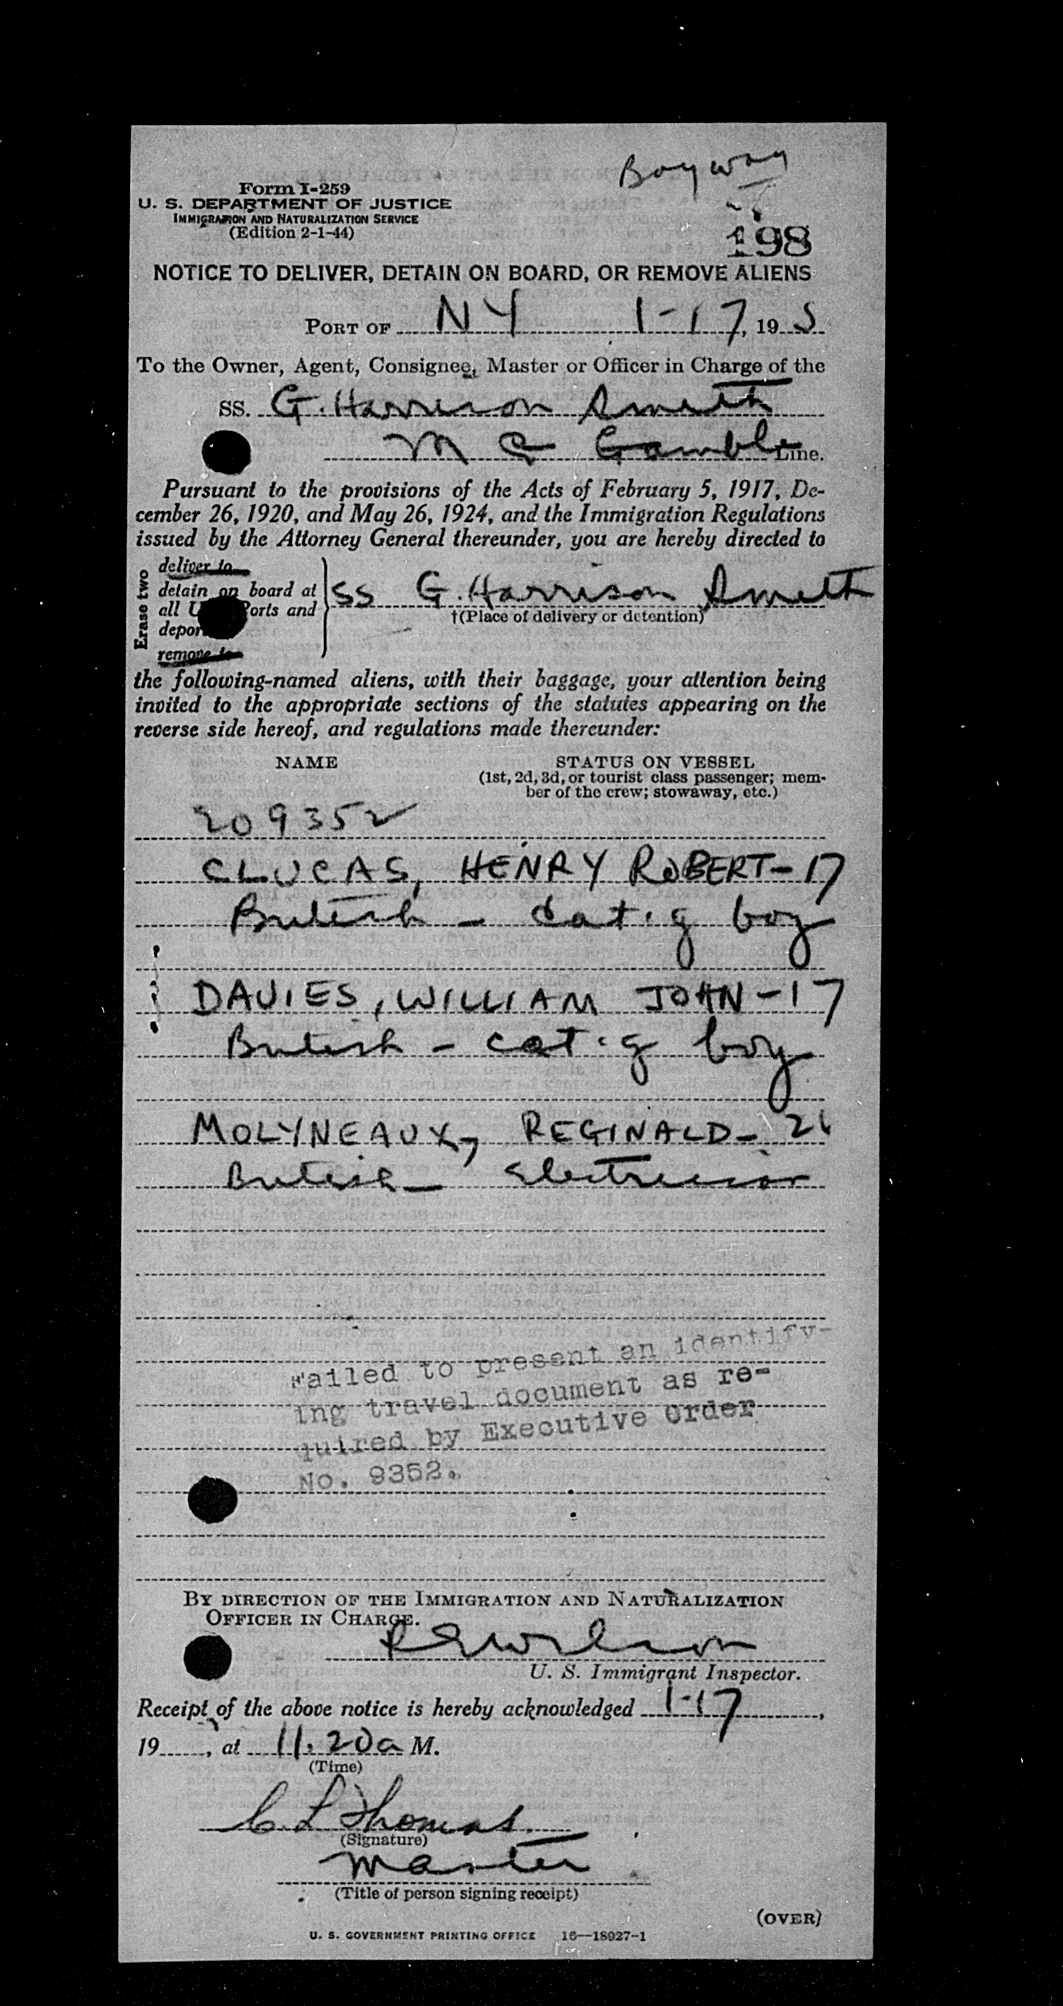 Bayway
Form I-259
U. S. DEPARTMENT OF JUSTICE
IMMIGRATION AND NATURALIZATION SERVICE
(Edition 2-1-44)
198
NOTICE TO DELIVER, DETAIN ON BOARD, OR REMOVE ALIENS
PORT OF NY 1-17, 19 5
To the Owner, Agent, Consignee, Master or Officer in Charge of the
SS. G. Harrison Smith
Mc Gamble Line.
Pursuant to the provisions of the Acts of February 5, 1917, De-
cember 26, 1920, and May 26, 1924, and the Immigration Regulations
issued by the Attorney General thereunder, you are hereby directed to
Erase two
deliver to
detain on board at
all U ports and
depor
remove to
SS G. Harrison Smith
†(Place of delivery or detention)
the following-named aliens, with their baggage, your attention being
invited to the appropriate sections of the statutes appearing on the
reverse side hereof, and regulations made thereunder:
NAME STATUS ON VESSEL
(1st, 2d, 3d, or tourist class passenger; mem-
ber of the crew; stowaway, etc.)
209352
CLUCAS, HENRY ROBERT - 17
British - cat. g boy
DAVIES, WILLIAM JOHN - 17
British - cat. g boy
MOLYNEAUX, REGINALD - 26
British - Electrician
Failed to present an identify-
ing travel document as re-
quired by Executive Order
No. 9352.
BY DIRECTION OF THE IMMIGRATION AND NATURALIZATION
OFFICER IN CHARGE.
R G Wilson
U. S. Immigrant Inspector.
Receipt of the above notice is hereby acknowledged 1-17,
19, at 11.20 a M.
(Time)
C. L Thomas.
(Signature)
Master
(Title of person signing receipt)
(OVER)
U. S. GOVERNMENT PRINTING OFFICE 16—18927-1